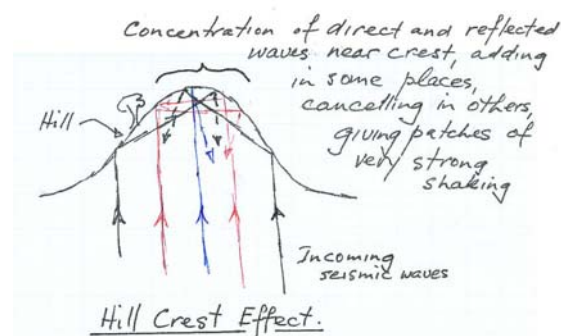 Concentration of direct and reflected
waves near crest, adding
in some places,
cancelling in others,
giving patches of
very strong
shaking
Hill
Incoming
seismic waves
Hill Crest Effect.